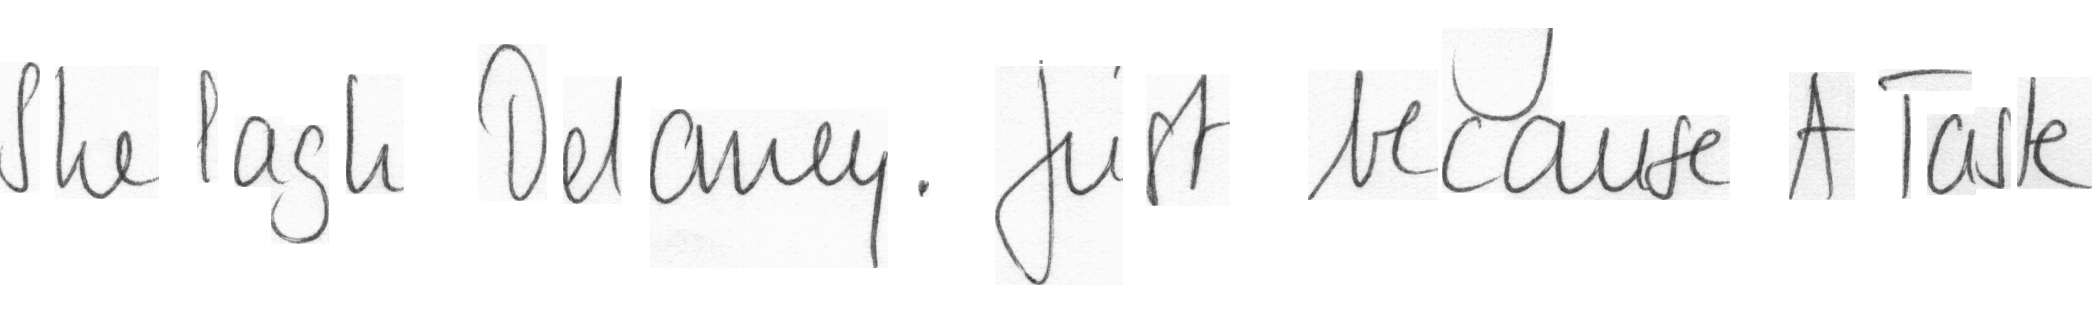 Shelagh Delaney. just because A Task